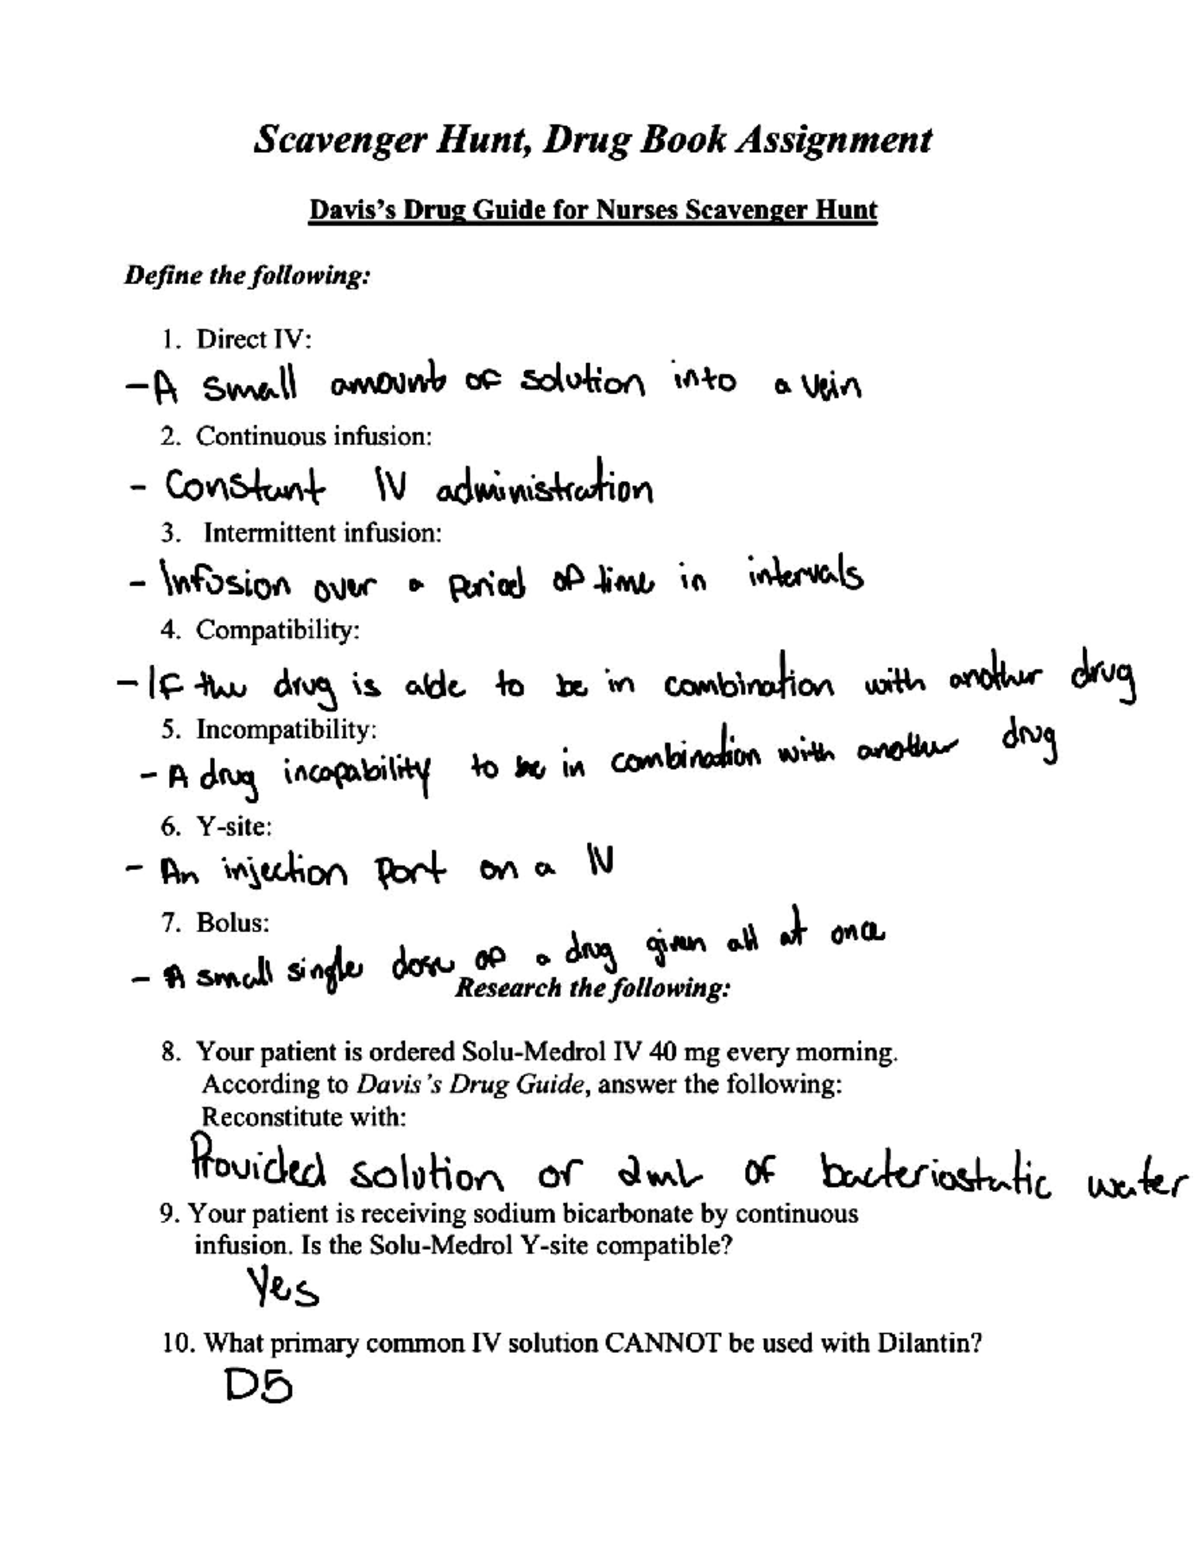 Scavenger Hunt, Drug Book Assignment
Davis's Drug Guide for Nurses Scavenger Hunt
Define the following:
1. Direct IV:
- A small amount of solution into a vein
2. Continuous infusion:
- Constant IV administration
3. Intermittent infusion:
- Infusion over a period of time in intervals
4. Compatibility:
- If the drug is able to be in combination with another drug
5. Incompatibility:
- A drug incapability to be in combination with another drug
6. Y-site:
- An injection port on a IV
7. Bolus:
- A small single dose of a drug given all at once
Research the following:
8. Your patient is ordered Solu-Medrol IV 40 mg every morning.
According to Davis's Drug Guide, answer the following:
Reconstitute with:
Provided solution or 2mL of bacteriostatic water
9. Your patient is receiving sodium bicarbonate by continuous
infusion. Is the Solu-Medrol Y-site compatible?
Yes
10. What primary common IV solution CANNOT be used with Dilantin?
D5